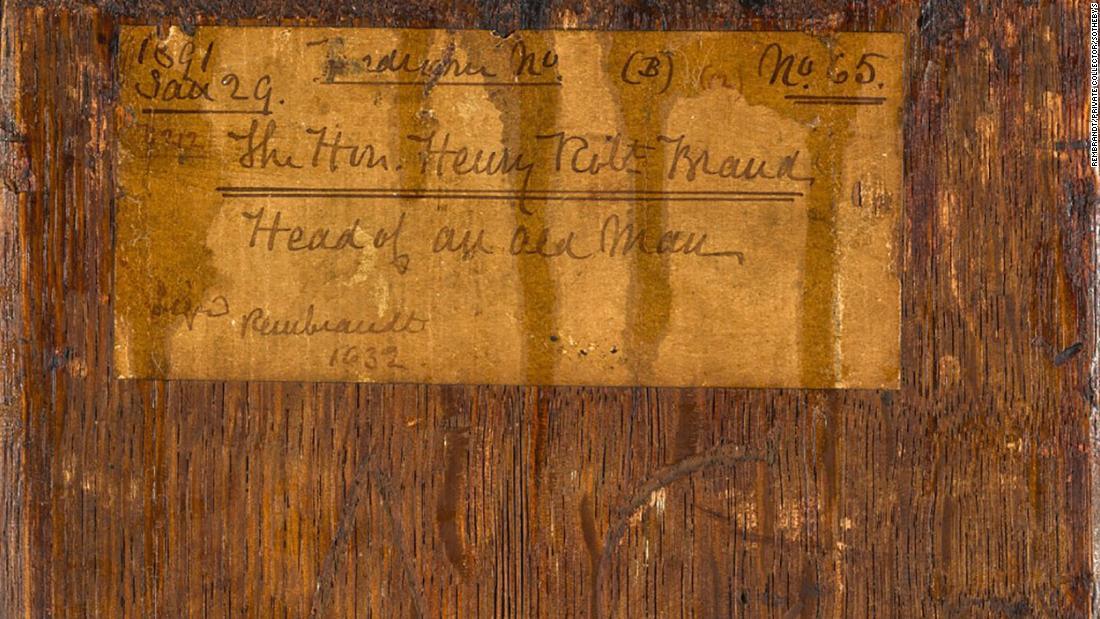 1891
Jan 29.
No.
(B)
No. 65.
The Hon Henry Brand
Head of an old Man
Rembrandt
1632
REMBRANDT/PRIVATE COLLECTOR/SOTHEBY'S